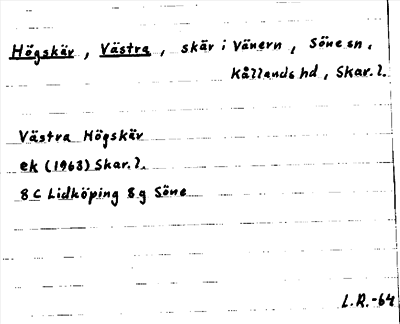 Högskär, Västra, skär i Vänern, Söne sn,
Kållands hd, Skar. l.
Västra Högskär
ek (1963) Skar. l.
8 C Lidköping 8 g Söne
L.R.-64